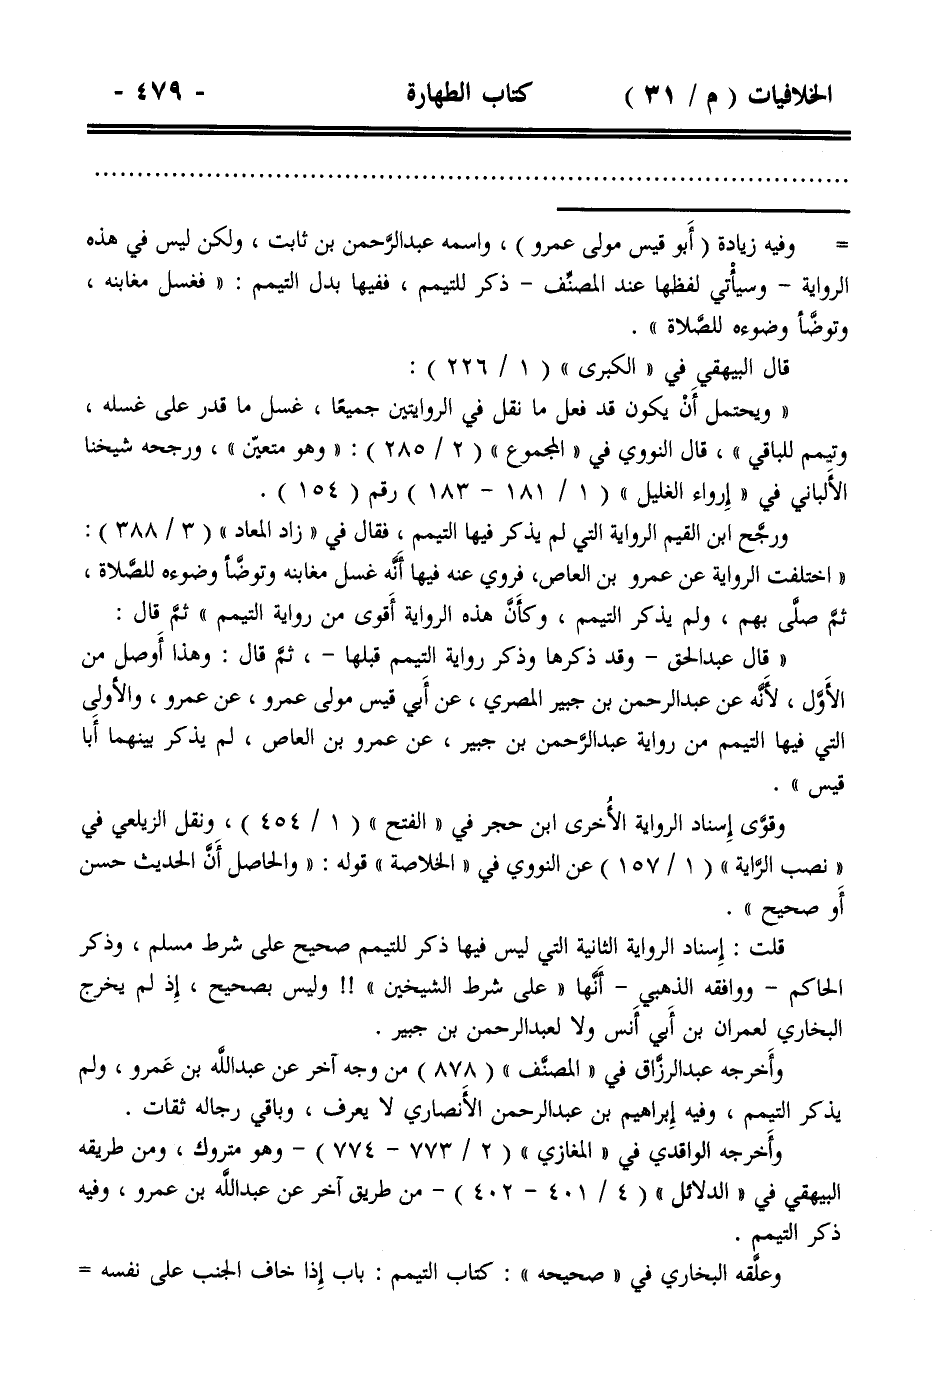 الخلافيات ( م / ٣١ ) كتاب الطهارة - ٤٧٩ -
= وفيه زيادة ( أَبو قيس مولى عمرو ) ، واسمه عبدالرَّحمن بن ثابت ، ولكن ليس في هذه
الرواية – وسيأْتي لفظها عند المصنِّف – ذكر للتيمم ، ففيها بدل التيمم : « فغسل مغابنه ،
وتوضَّأ وضوءه للصَّلاة » .
قال البيهقي في « الكبرى » ( ١ / ٢٢٦ ) :
« ويحتمل أَنْ يكون قد فعل ما نقل في الروايتين جميعًا ، غسل ما قدر على غسله ،
وتيمم للباقي » ، قال النووي في « المجموع » ( ٢ / ٢٨٥ ) : « وهو متعيّن » ، ورجحه شيخنا
الأَلباني في « إِرواء الغليل » ( ١ / ١٨١ – ١٨٣ ) رقم ( ١٥٤ ) .
ورجَّح ابن القيم الرواية التي لم يذكر فيها التيمم ، فقال في « زاد المعاد » ( ٣ / ٣٨٨ ) :
« اختلفت الرواية عن عمرو بن العاص، فروي عنه فيها أَنَّه غسل مغابنه وتوضَّأ وضوءه للصَّلاة ،
ثمَّ صلَّى بهم ، ولم يذكر التيمم ، وكأَنَّ هذه الرواية أَقوى من رواية التيمم » ثمَّ قال :
« قال عبدالحق – وقد ذكرها وذكر رواية التيمم قبلها – ، ثمَّ قال : وهذا أَوصل من
الأَوَّل ، لأَنَّه عن عبدالرحمن بن جبير المصري ، عن أَبي قيس مولى عمرو ، عن عمرو ، والأولى
التي فيها التيمم من رواية عبدالرَّحمن بن جبير ، عن عمرو بن العاص ، لم يذكر بينهما أَبا
قيس » .
وقوَّى إِسناد الرواية الأُخرى ابن حجر في « الفتح » ( ١ / ٤٥٤ ) ، ونقل الزيلعي في
« نصب الرَّاية » ( ١ / ١٥٧ ) عن النووي في « الخلاصة » قوله : « والحاصل أَنَّ الحديث حسن
أَو صحيح » .
قلت : إِسناد الرواية الثانية التي ليس فيها ذكر للتيمم صحيح على شرط مسلم ، وذكر
الحاكم – ووافقه الذهبي – أَنَّها « على شرط الشيخين » !! وليس بصحيح ، إِذ لم يخرج
البخاري لعمران بن أَبي أَنس ولا لعبدالرحمن بن جبير .
وأَخرجه عبدالرزَّاق في « المصنَّف » ( ٨٧٨ ) من وجه آخر عن عبداللَّه بن عَمرو ، ولم
يذكر التيمم ، وفيه إِبراهيم بن عبدالرحمن الأَنصاري لا يعرف ، وباقي رجاله ثقات .
وأَخرجه الواقدي في « المغازي » ( ٢ / ٧٧٣ – ٧٧٤ ) – وهو متروك ، ومن طريقه
البيهقي في « الدلائل » ( ٤ / ٤٠١ – ٤٠٢ ) – من طريق آخر عن عبداللَّه بن عمرو ، وفيه
ذكر التيمم .
وعلَّقه البخاري في « صحيحه » : كتاب التيمم : باب إِذا خاف الجنب على نفسه =